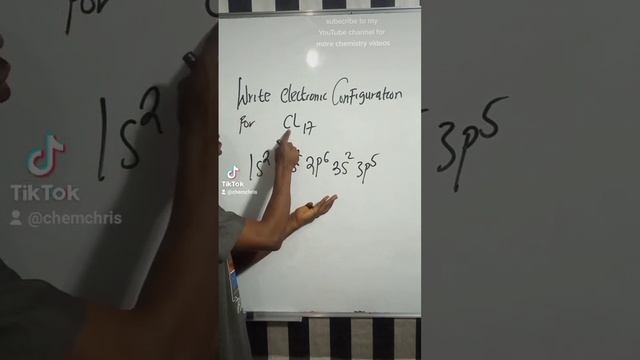 subcribe to my
YouTube channel for
more chemistry videos
Write electronic Configuration
For CL 17
1s² 2p⁶ 3s² 3p⁵
TikTok
@chemchris
For
1s²
3p⁵
TikTok
@chemchris